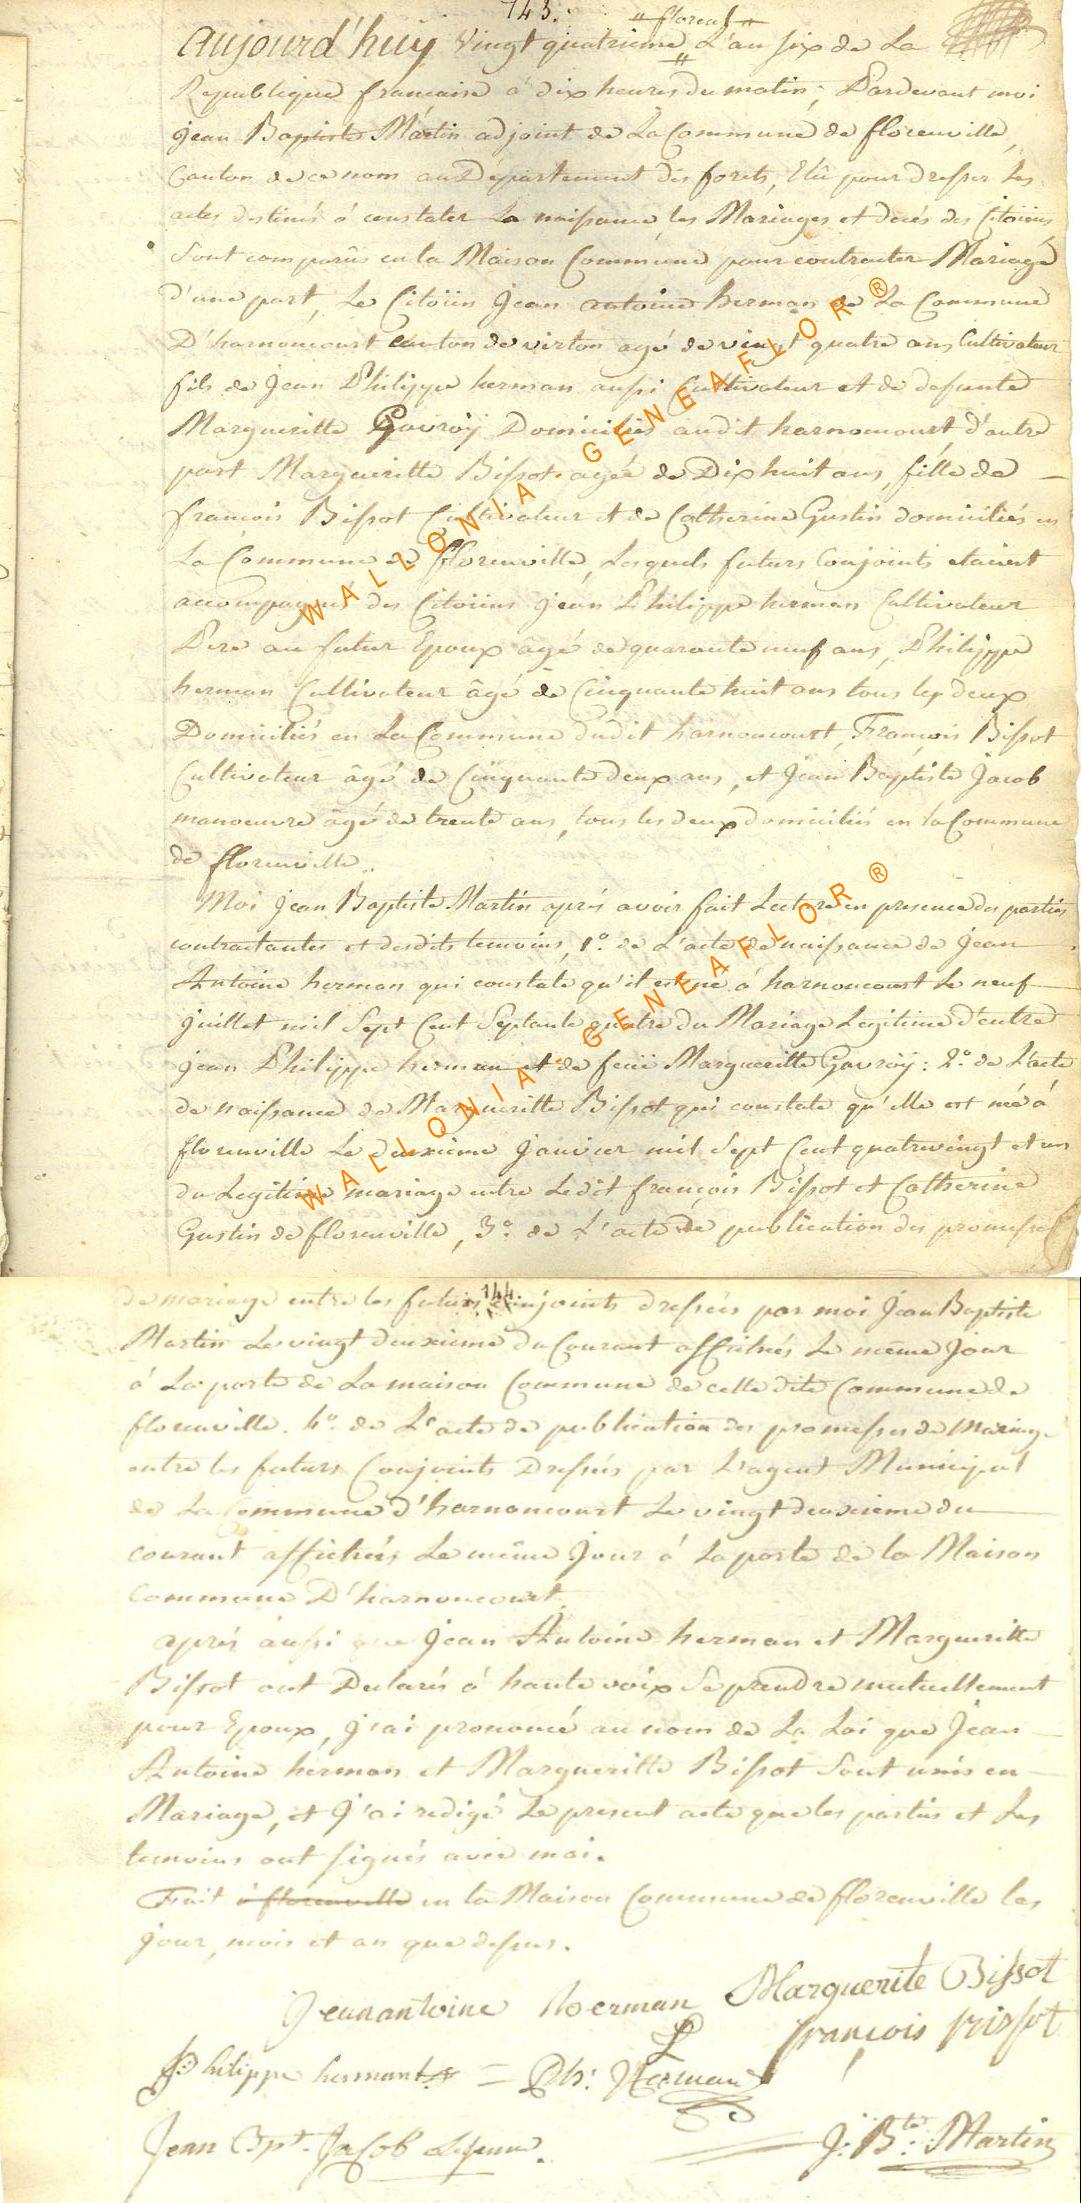 143.
" floreal "
aujourd'huy Vingt quatrieme L'an six de La
Republique francaise a dix heures du matin; Pardevant moi
jean Baptiste Martin adjoint de La Commune de florenville,
Canton de ce nom au Département des forets, Elû pour dresser les
actes destinés á constater La naissance, les Mariages et decés des Citoiins,
Sont comparûs en la Maison Commune pour contracter Mariage
d'une part, Le Citoiin Jean antoine herman de La Commune
D'harnoncourt canton de virton agé de vingt quatre ans Cultivateur
fils de Jean Philippe herman aussi Cultivateur et de defunte
Margueritte Gavroÿ Domiciliés audit harnoncourt, d'autre
part Margueritte Bissot agée de Dix huit ans, fille de
francois Bissot Cultivateur et de Catherine Gustin domiciliés en
La Commune de florenville, Lesquels futurs Conjoints etaient
accompagnés des Citoiins jean Philippe herman Cultivateur
Pere au futur Epoux âgé de quarante neuf ans, Philippe
herman Cultivateur âgé de Cinquante huit ans tous les deux
Domiciliés en La Commune dudit harnoncourt, François Bissot
Cultivateur âgé de Cinquante deux ans, et Jean Baptiste Jacob
manoeuvre âgé de trente ans, tous les deux domiciliés en la Commune
de florenville.
Moi Jean Baptiste Martin aprés avoir fait Lecture en presence des parties
contractantes et desdits temoins, 1° de L'acte de naissance de Jean
Antoine herman qui constate qu'il est né á harnoncourt Le neuf
juillet mil Sept Cent Septante quatre du Mariage Legitime d'entre
jean Philippe herman et de feue Margueritte Gavroÿ: 2° de L'acte
de naissance de Margueritte Bissot qui constate qu'elle est née á
florenville Le deuxieme Janvier mil Sept Cent quatrevingt et un
du Legitime mariage entre Ledit françois Bissot et Catherine
Gustin de florenville, 3° de L'acte de publication des promesses
WALLONIA - GENEAFLOR ®
WALLONIA - GENEAFLOR ®
144.
de mariage entre les futurs conjoints dressées par moi Jean Baptiste
Martin Le vingt deuxieme du Courant affichés Le meme Jour
á La porte de La maison Commune de cette dite Commune de
florenville. 4° de L'acte de publication des promesses de Mariage
entre les futurs Conjoints Dressés par L'agent Municipal
de La Commune d'harnoncourt Le vingt deuxieme du
courant affichées Le même Jour á La porte de la Maison
Commune D'harnoncourt.
aprés aussi que Jean Antoine herman et Margueritte
Bissot ont Declarés á haute voix Se prendre mutuellement
pour Epoux, j'ai prononcé au nom de La Loi que Jean
Antoine herman et Margueritte Bissot Sont unis en
Mariage, et J'ai redigé Le present acte que les parties et Les
temoins ont signés avec moi.
Fait á florenville en la Maison Commune de florenville les
jour, mois et an que dessus.
Jean antoine herman Marguerite Bissot
françois bissot
Philippe herman = Ph: Herman
Jean Bpt. Jacob
J: Bte: Martin